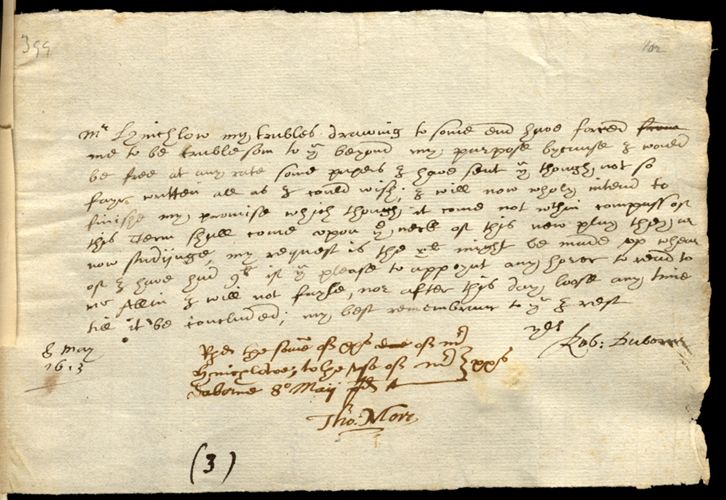 399
102
Mr Hinchlow my trubles drawing to some end have forced
me to be trublesom to yu beyond my purpose bycause I would
be free at any rate some papers I have sent yu though not so
fayr written all as I could wish; I will now wholy intend to
finishe my promise which though it come not within compass of
this Term shall come upon the neck of this new play they ar
now studijnge, my request is the xl might be made up whear
of I have had 9l if yu please to appoynt any hower to read to
mr Allin I will not fayle, nor after this day loose any time
till it be concluded; my best remembrance to yu I rest
8 May
1613
yors
Rob: Daborne
Rd the some of xxs of mr
Hynchlowes to the use of mr xxs
Daborne 8o May
Tho: More
(3)